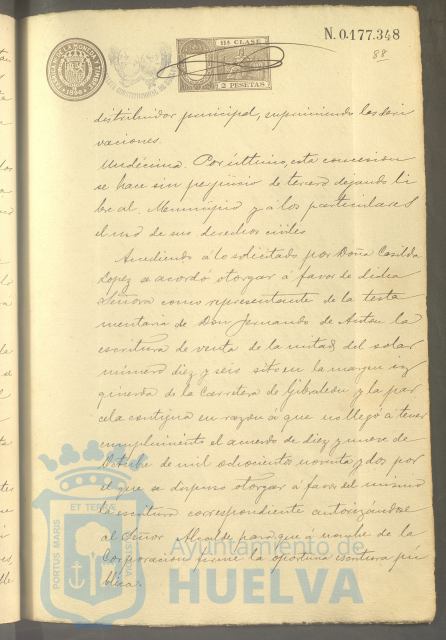 N. 0.177.348
88
FABRICA DE LA MONEDA Y TIMBRE
1898
11ª CLASE
2 PESETAS
distribuidor principal, suprimiendo las deri
vaciones.
Undécima. Por último, esta concesion
se hace sin perjuicio de tercero dejando li
bre al Municipio y á los particulares
el uso de sus derechos civiles
Accediendo á lo solicitado por Doña Casilda
Lopez se acordó otorgar á favor de dicha
Señora como representante de la testa
mentaria de Don Fernando de Anton la
escritura de venta de la mitad del solar
número diez y seis sito en la margen iz
quierda de la Carretera de Gibraleon y la par
cela contigua en razon á que no llegó á tener
cumplimiento el acuerdo de diez y nueve de
Octubre de mil ochocientos noventa y dos por
el que se dispuso otorgar á favor del mismo
la escritura correspondiente autorizándose
al Señor Alcalde para que á nombre de la
Corporacion firme la oportuna escritura pú
blica.
PORTUS MARIS ET TERRE CUSTODIA
Ayuntamiento de
HUELVA